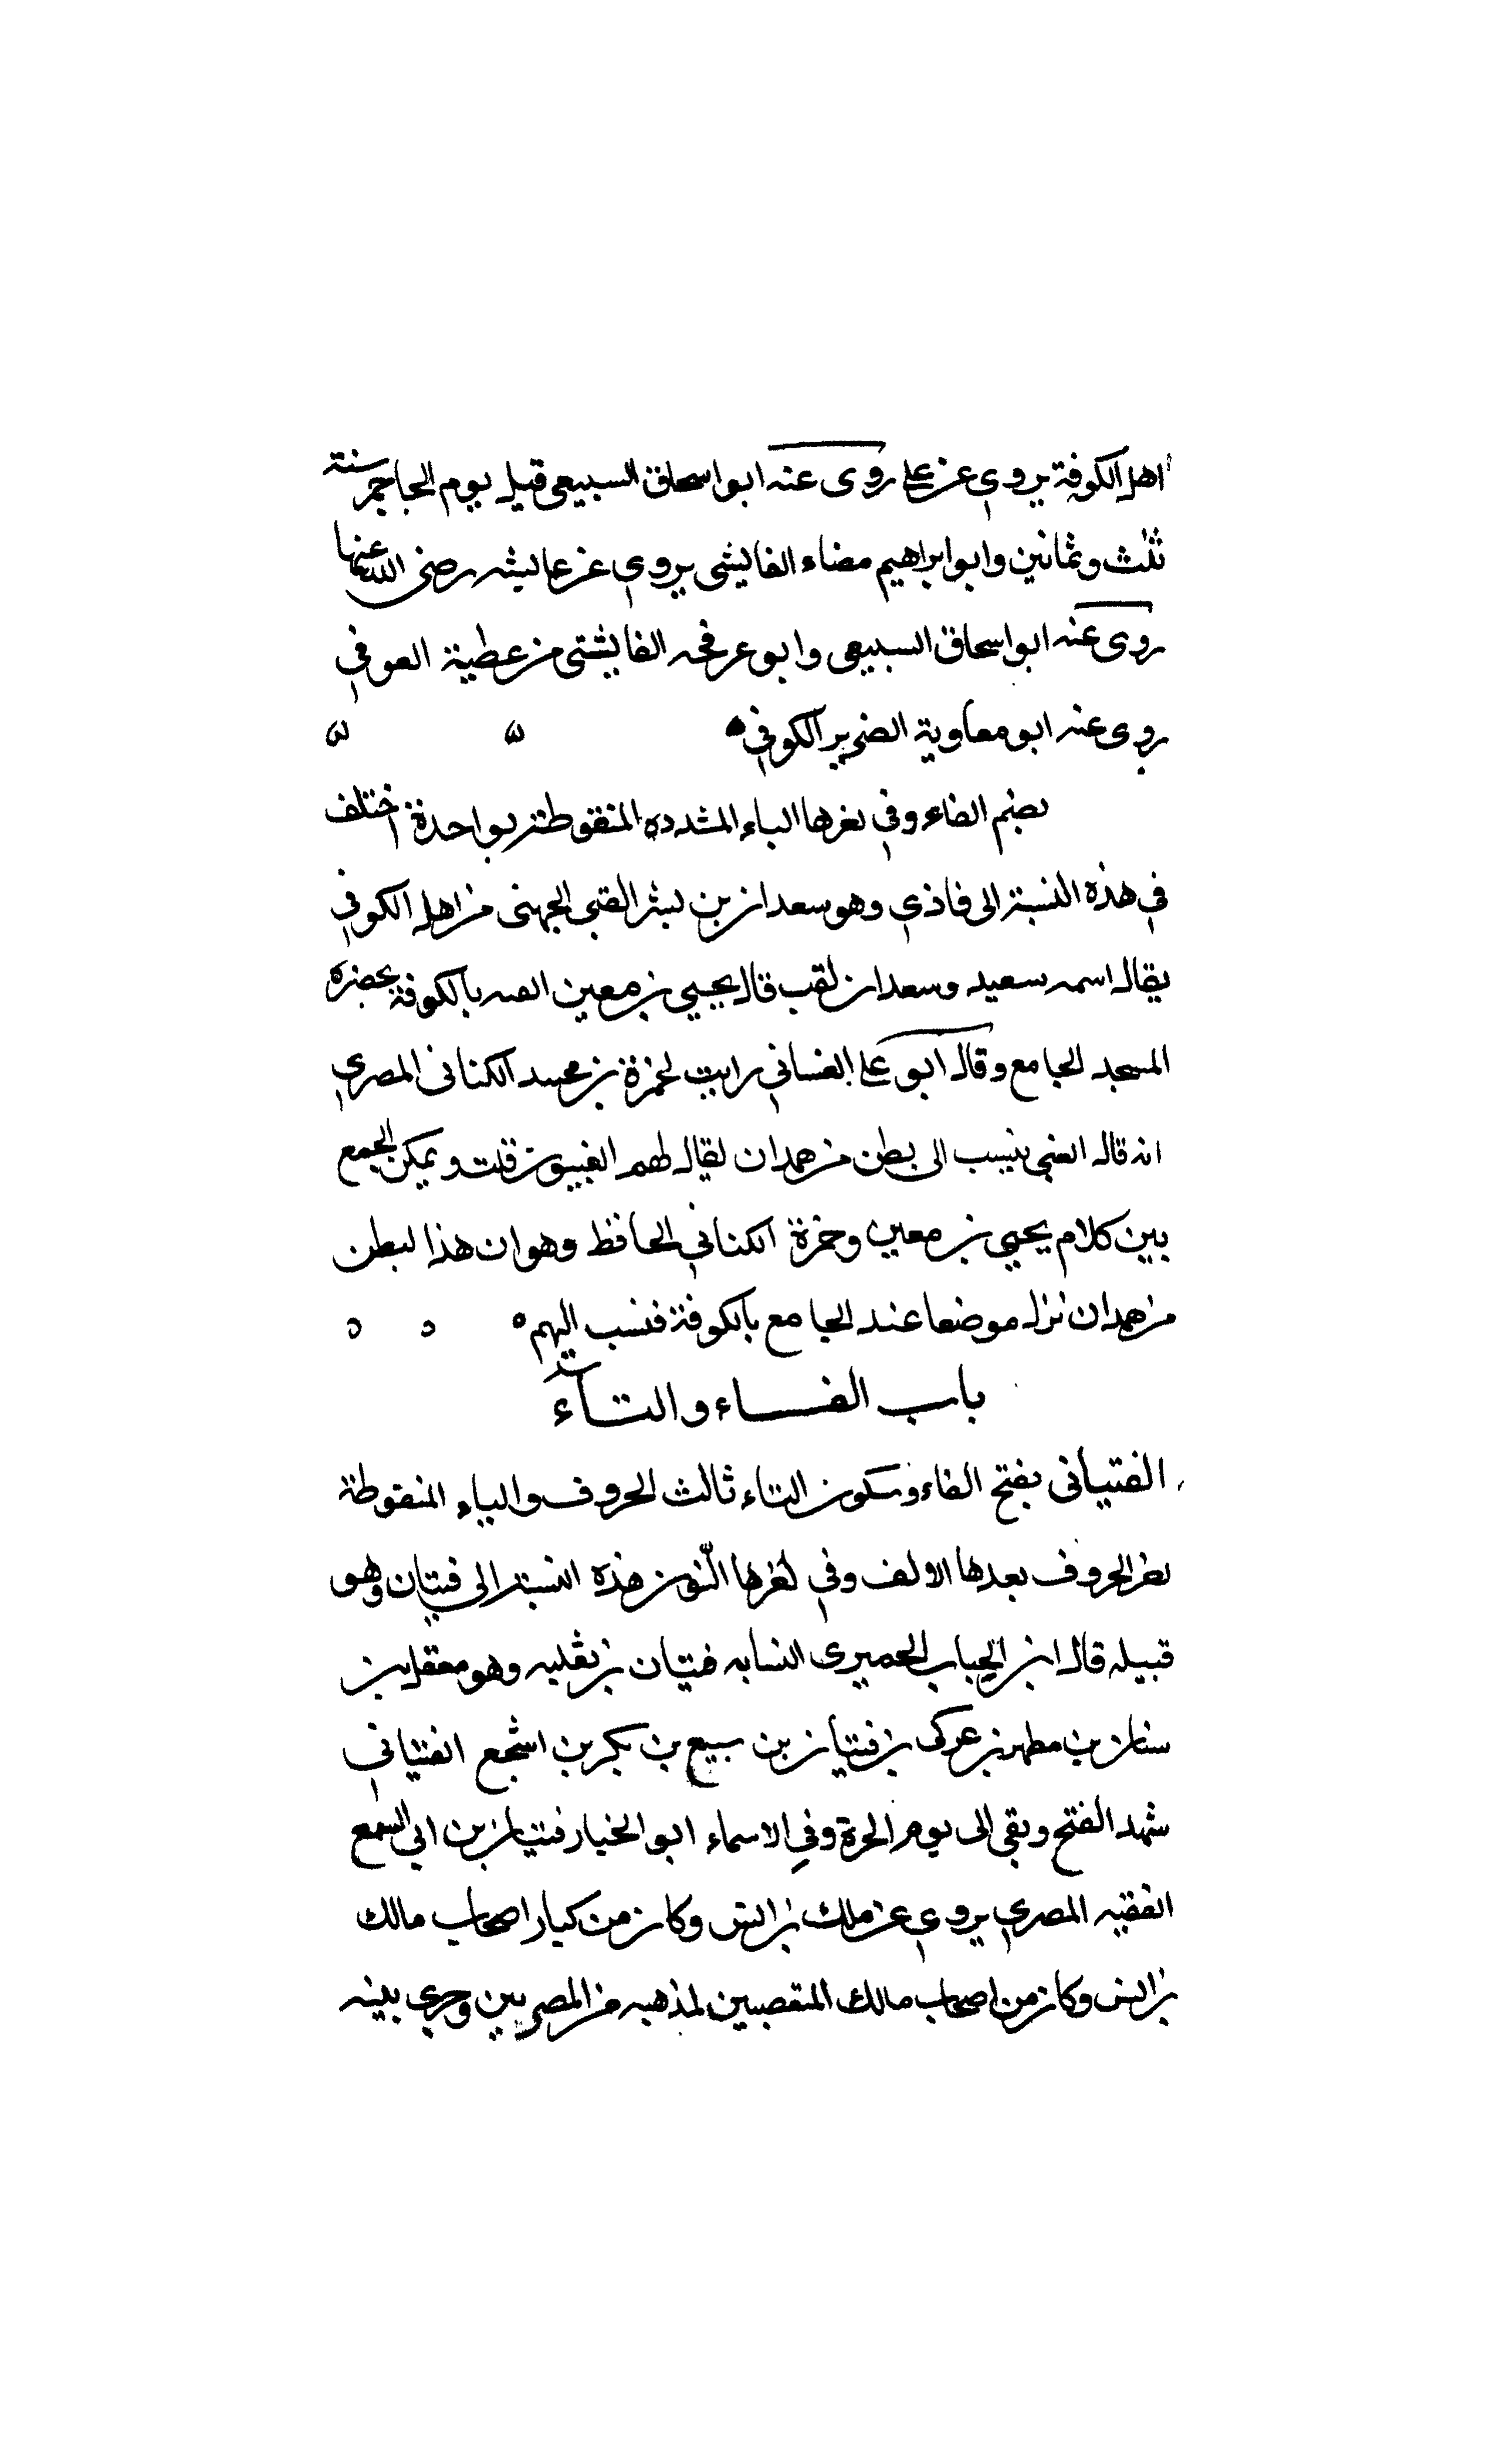 اهل الكوفة يروي عن علي روى عنه ابو اسحاق السبيعي قتيل يوم الجماجم سنة
ثلث وثمانين وابو ابراهيم مضاء الفايشي يروي عن عايشه رضي الله عنها
روى عنه ابو اسحاق السبيعي وابو عرفجه الفايشي من عطية العوفي
روى عنه ابو معاوية الضرير الكوفي
بضم الفاء وفي اخرها الباء المشدده المنقوطة بواحدة اختلف
في هذه النسبة الى فاذي وهو سعدان بن بشر القبي الجهني من اهل الكوفي
يقال اسمه سعيد وسعدان لقب قال يحيي بن معين القبه بالكوفة بحضره
المسجد الجامع وقال ابو علي الغساني رايت لحمزة بن محمد الكناني المصري
انه قال القبي ينسب الى بطن من همدان يقال لهم القبيون قلت ويمكن الجمع
بين كلام يحيي بن معين وحمزة الكناني الحافظ وهو ان هذا البطن
من همدان نزل موضعا عند الجامع بالكوفة فنسب اليهم
باب الفاء والتاء
الفتياني بفتح الفاء وسكون التاء ثالث الحروف والياء المنقوطة
اخر الحروف بعدها الالف وفي اخرها النون هذه النسبة الى فتيان وهو
قبيله قال ابن الحباب الحميرى النسابه فتيان بن ثعلبه وهو معقل بن
سنان بن مطهر بن عركى بن فتيان بن سبيع بن بكر بن اشجع الفتياني
شهد الفتح وبقي الى يوم الحرة وفي الاسماء ابو الخيار فتيان بن ابي السمع
الفقيه المصري يروي عن ملك بن انس وكان من كبار اصحاب مالك
بن انس وكان من اصحاب مالك المتعصبين لمذهبه من المصريين وجرى بينه